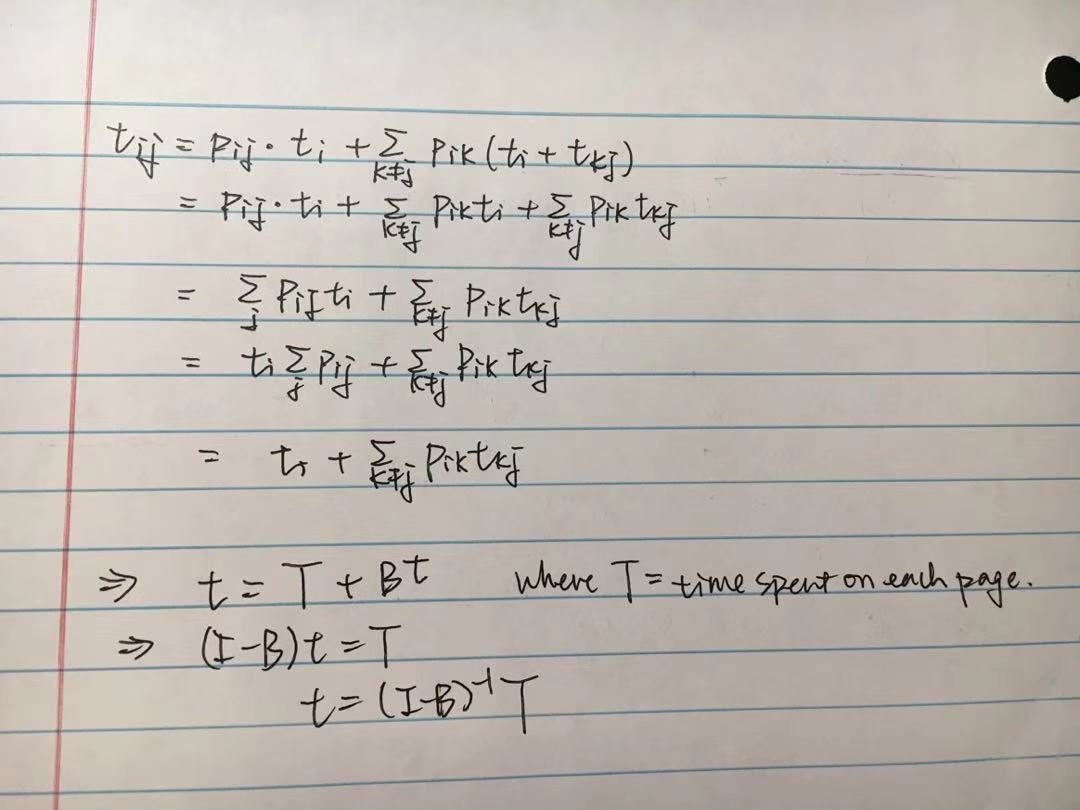 t_{ij} = p_{ij} · t_i + ∑_{k≠j} p_{ik} (t_i + t_{kj})
= p_{ij} · t_i + ∑_{k≠j} p_{ik} t_i + ∑_{k≠j} p_{ik} t_{kj}
= ∑_j p_{ij} t_i + ∑_{k≠j} p_{ik} t_{kj}
= t_i ∑_j p_{ij} + ∑_{k≠j} p_{ik} t_{kj}
= t_i + ∑_{k≠j} p_{ik} t_{kj}
⇒ t = T + Bt where T = time spent on each page.
⇒ (I-B)t = T
t = (I-B)^{-1} T